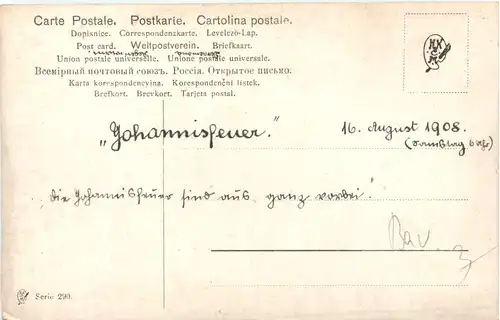 Carte Postale. Postkarte. Cartolina postale.
Dopisnice. Correspondenzkarte. Levelező-Lap.
Post card. Weltpostverein. Briefkaart.
Union postale universelle. Unione postale universale.
Всемірный почтовый союзъ. Россія. Открытое письмо.
Karta korespondencyjna. Korespondenční lístek.
Brefkort. Brevkort. Tarjeta postal.
„Johannisfeuer."
16. August 1908.
(Samstag 6 Uhr)
„Die Johannisfeuer sind aus, ganz vorbei."
Bav.
3
Serie 290.